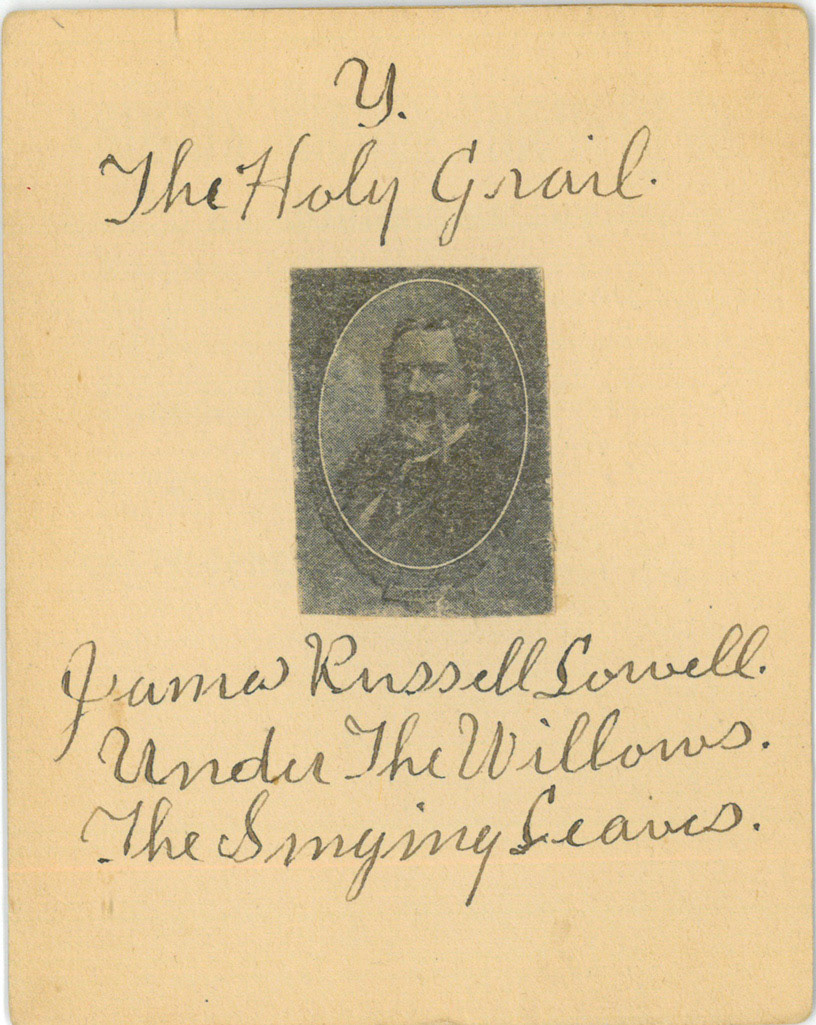 Y.
The Holy Grail.
James Russell Lowell.
Under The Willows.
The Singing Leaves.